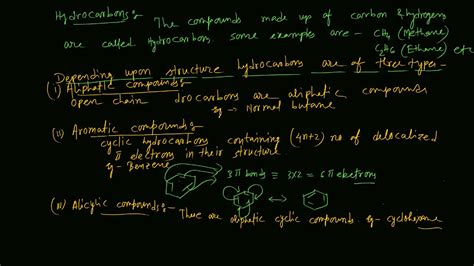 Hydrocarbons:
The compounds made up of carbon & hydrogens
are called Hydrocarbon. some examples are - CH4 (Methane)
C2H6 (Ethane) etc
Depending upon structure hydrocarbons are of three types-
(I) Aliphatic compounds:
open chain drocarbons are aliphatic compounds
eg → Normal butane
(II) Aromatic compounds:
cyclic hydrocarbons containing (4n+2) no of delocalized
π electrons in their structure
eg - Benzene
3 π bonds = 3×2 = 6 π electrons
(III) Alicylic compounds:- These are aliphatic cyclic compounds. eg - cyclohexane